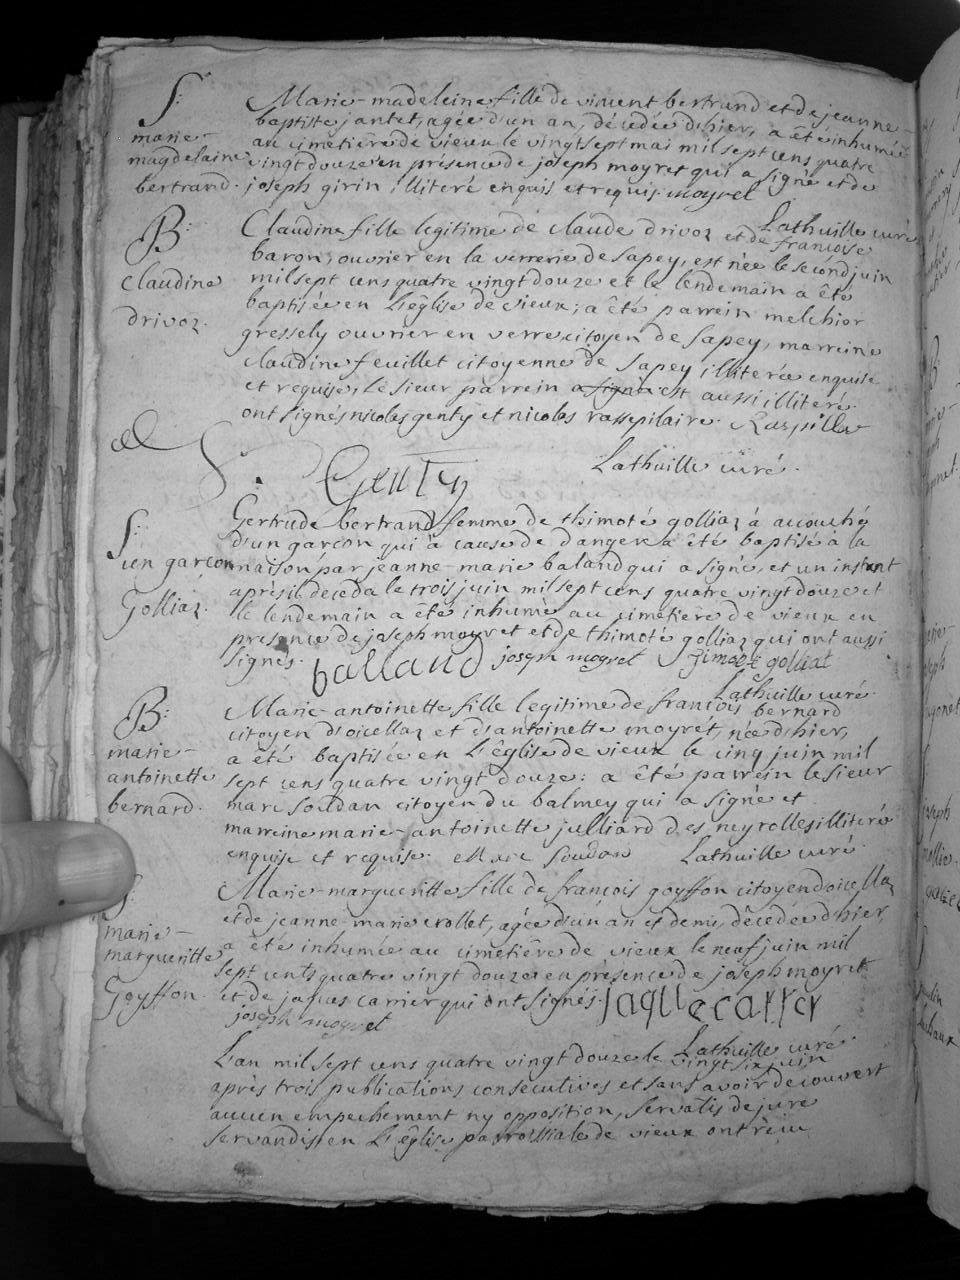 S:
marie-
magdelaine
bertrand.
Marie-madeleine fille de vincent bertrand et de jeanne-
baptiste jantet, agée d'un an, décédée d'hier, a été inhumée
au cimetière de vieux le vingt sept mai mil sept cens quatre
vingt douze en présence de joseph moyret qui a signé et de
joseph girin illiteré enquis et requis. moyret
Lathuille curé.
B:
Claudine
drivoz.
Claudine fille legitime de claude drivoz et de françoise
baron, ouvrier en la verrerie de sapey, est née le second juin
mil sept cens quatre vingt douze et le lendemain a été
baptisée en L'église de vieux; a été parrein melchior
gressely ouvrier en verre citoyen de sapey, marreine
claudine feuillet citoyenne de sapey illiterée enquise
et requise, Le sieur parrein a signé est aussi illiteré.
ont signés nicolas genty et nicolas rassepilaire.
Genty
Lathuille curé.
S:
un garçon
Golliaz.
Gertrude bertrand femme de thimoté golliaz á accouché
d'un garçon qui à cause de danger a été baptisé a la
maison par jeanne-marie baland qui a signé, et un instant
après il deceda le trois juin mil sept cens quatre vingt douze et
le lendemain a été inhumé au cimetière de vieux en
présence de joseph moyret et de thimoté golliaz qui ont aussi
signés.
balland joseph moyret Timoté golliat
Lathuille curé.
B:
marie-
antoinette
bernard.
Marie-antoinette fille legitime de françois bernard
citoyen d'oicellaz et d'antoinette moyrét, née d'hier,
a été baptisée en L'église de vieux le cinq juin mil
sept cens quatre vingt douze: a été parrein le sieur
marc soudan citoyen du balmey qui a signé et
marreine marie-antoinette julliard des neyrolles illiteré
enquise et requise. Marc Soudan Lathuille curé.
S:
marie-
margueritte
Goyffon.
Marie-margueritte fille de françois goyffon citoyen d'oicellaz
et de jeanne-marie crollet, agée d'un an et demi, décédée d'hier,
a été inhumée au cimetière de vieux le neuf juin mil
sept cents quatre vingt douze en présence de joseph moyret
et de jaques carrier qui ont signés. jaque carrer
joseph moyret
Lathuille curé.
L'an mil sept cens quatre vingt douze le vingt six juin
après trois publications consécutives et sans avoir decouvert
aucun empechement ny opposition, servatis de jure
servandis, en L'église parroissiale de vieux ont reçu